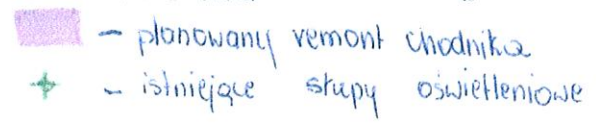 - planowany remont chodnika
- istniejące słupy oświetleniowe